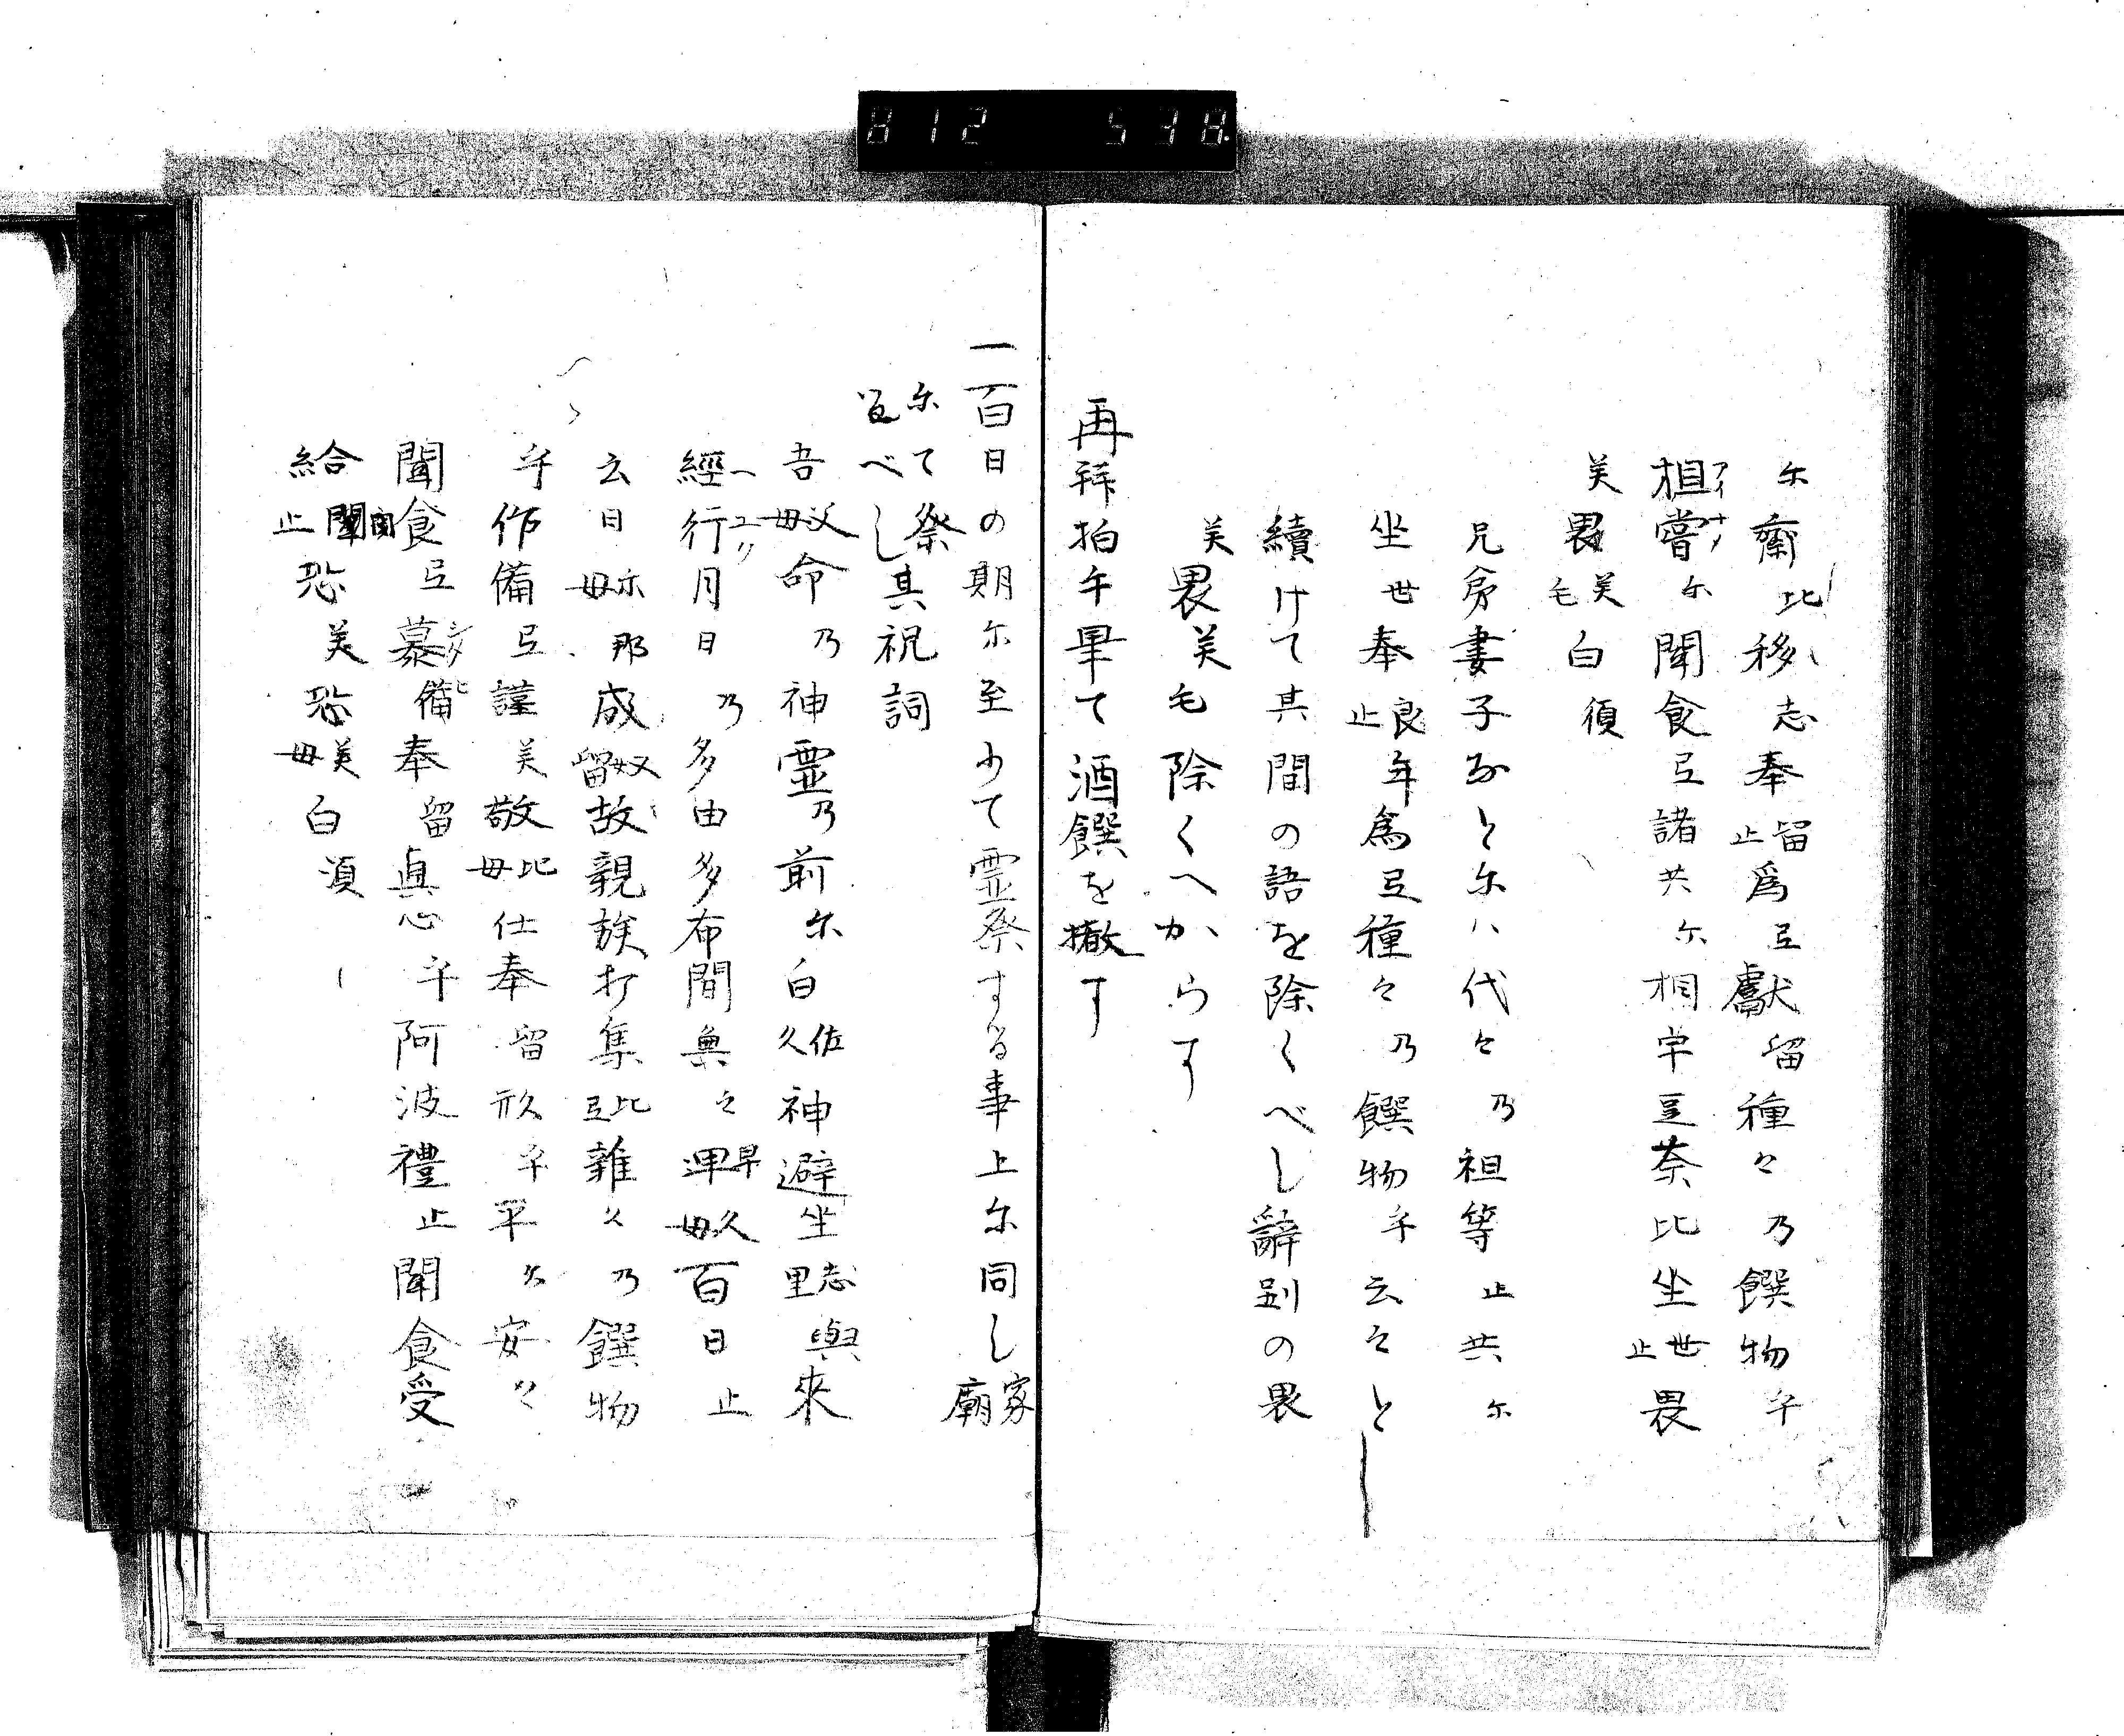 812 538
尓齋比移志奉留止爲弖獻留種々乃饌物乎
相嘗尓聞食弖諸共尓相宇豆奈比坐世止畏
美畏美毛白須
兄弟妻子なと尓ハ代々乃祖等止共尓
坐世奉良止年爲弖種々乃饌物乎云々と
續けて其間の語を除くべし辭別の畏
美畏美毛除くへからす
再拜拍手畢て酒饌を撤す
一百日の期尓至りて霊祭する事上尓同し家廟
尓て祭
べし其祝詞
吾父母命乃神霊乃前尓白佐久神避坐志里與來
經行月日乃多由多布間無之运早久毋百日止
云日尓毋那成奴留故親族打集比弖雜久乃饌物
乎作備弖謹美敬比毋仕奉留形乎平久安々
聞食弖慕備奉留眞心乎阿波禮止聞食受
給聞止恐美恐美毋白須